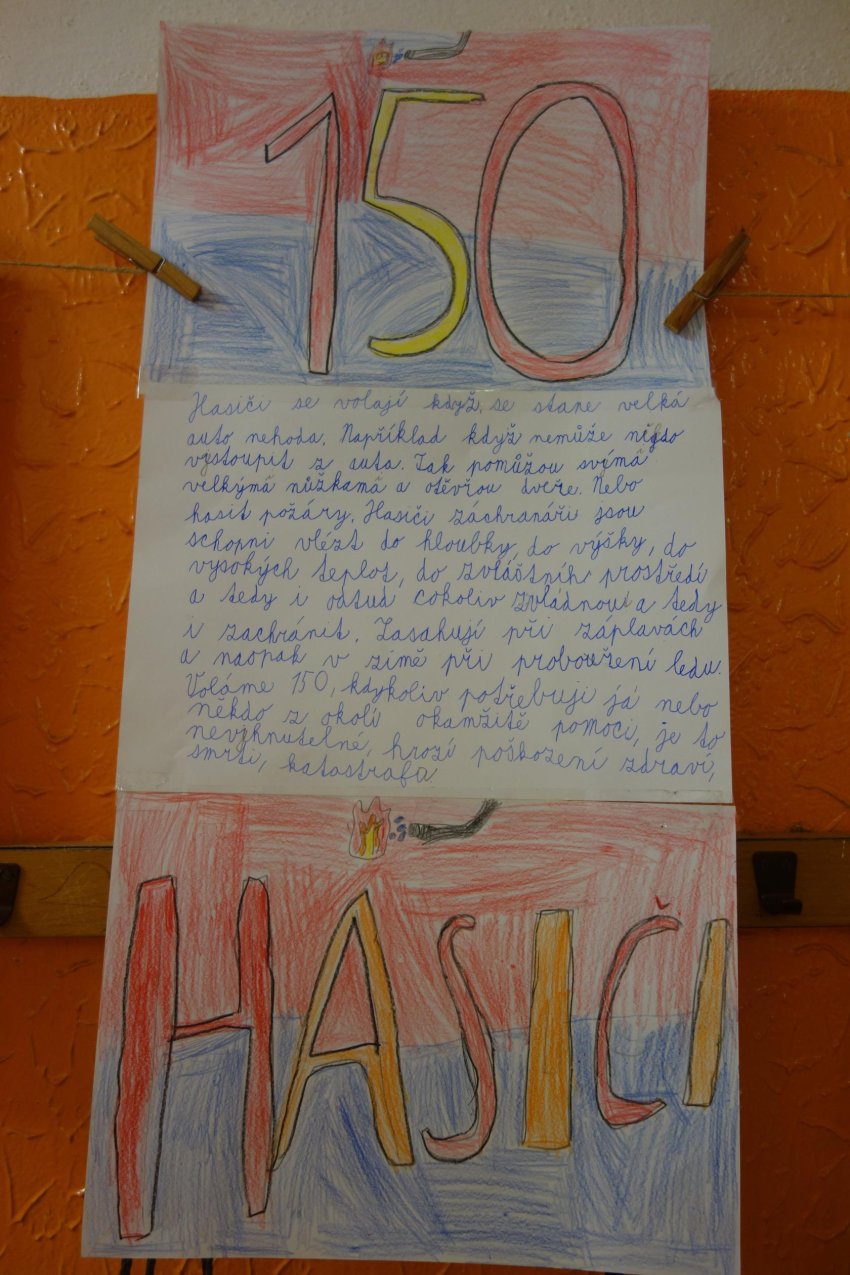 150
Hasiči se volají když se stane velká
auto nehoda. Například když nemůže nigdo
vystoupit z auta. Tak pomůžou svýmá
velkýmá nůžkamá a otěvřou dveře. Nebo
hasit požáry. Hasiči záchranáři jsou
schopni vlézt do hloubky, do výšky, do
vysokých teplot, do zvláštních prostředí
a tedy i odtud cokoliv zvládnou a tedy
i zachránit. Zasahují při záplavách
a naopak v zimě při probouření ledu.
Voláme 150, kdykoliv potřebuji já nebo
někdo z okolí okamžitě pomoci, je to
nevyhnutelné, hrozí poškození zdraví,
smrti, katastrafa
HASIČI